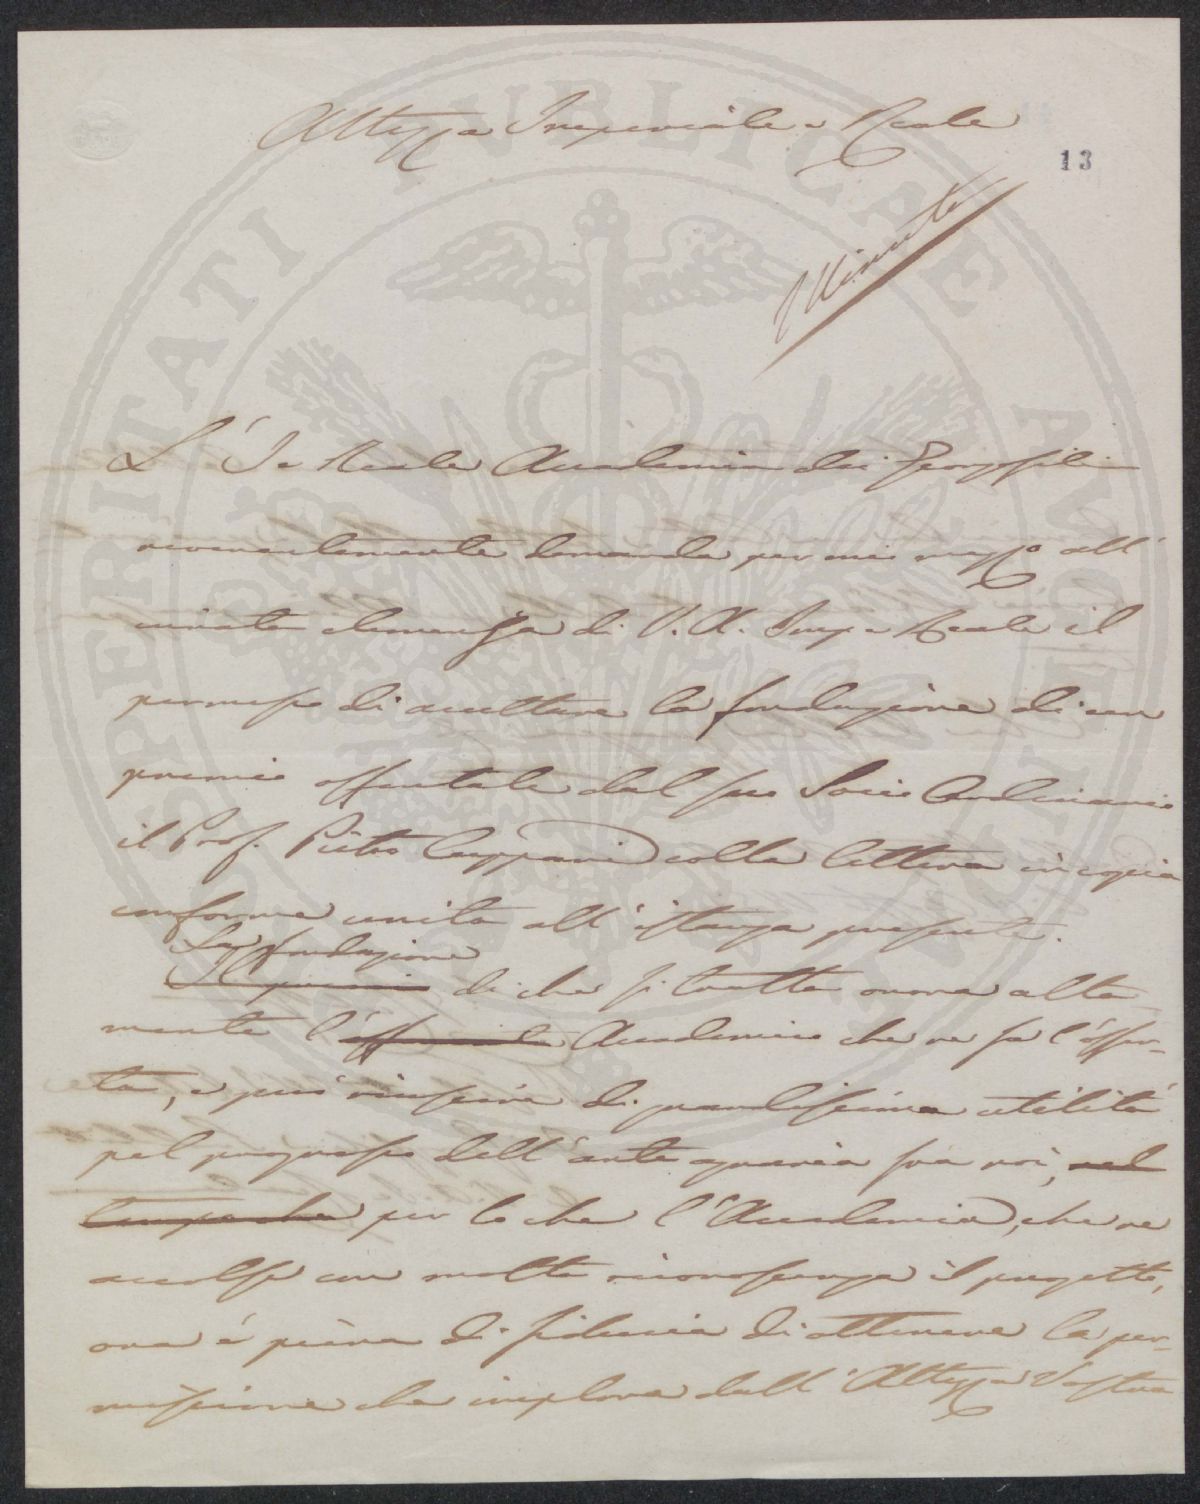 Altezza Imperiale e Reale
13
Minuta
L' I. e Reale Accademia dei Georgofili
reverentemente domanda per mio mezzo all'
innata clemenza di V. A. Imp. e Reale il
permesso di accettare la fondazione di un
premio offertale dal suo Socio Ordinario
il Prof. Pietro Cuppari colla lettera in copia
conforme unita all'istanza presente.
La fondazione
Il premio di che si tratta onora alta
mente l' Accademico che ne fa l'offer-
ta, e può riuscire di grandissima utilità
pel progresso dell'arte agraria fra noi, nel
tempo che per lo che l'Accademia, che ne
accolse con molta riconoscenza il progetto,
ora è piena di fiducia di ottenere la per-
missione che implora dall'Altezza Vostra